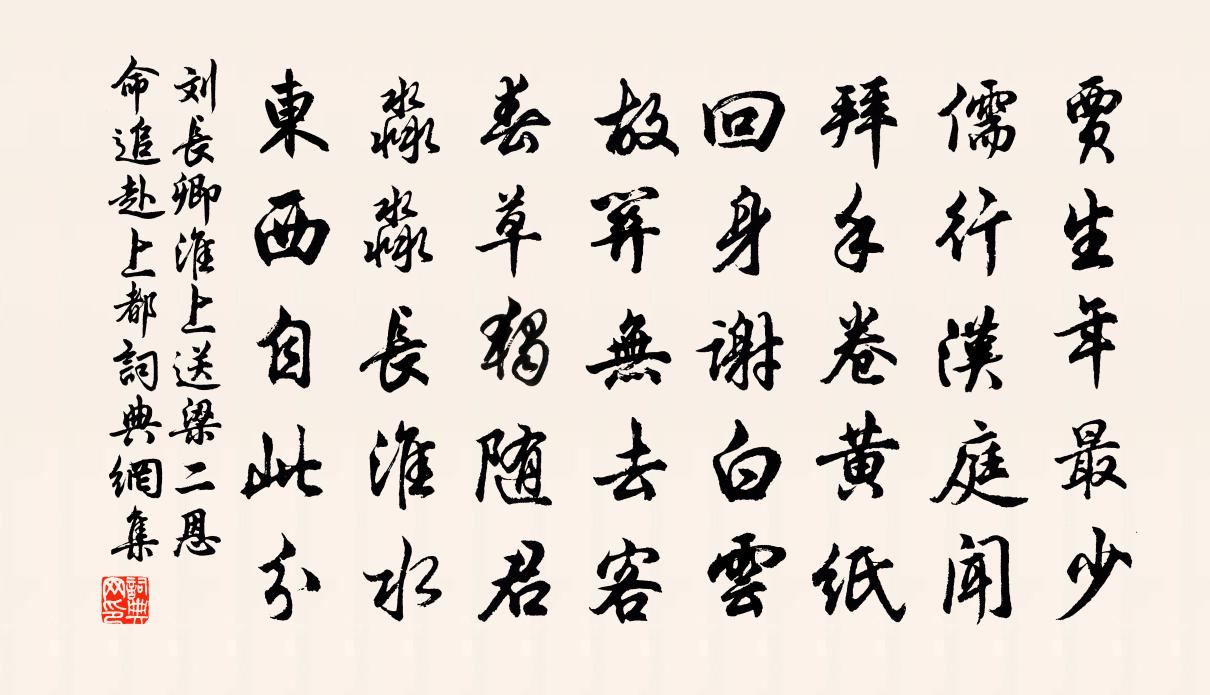 賈生年最少
儒行漢庭聞
拜手卷黃紙
回身謝白雲
故關無去客
春草獨隨君
淼淼長淮水
東西自此分
刘長卿淮上送梁二恩
命追赴上都詞典網集
詞典网印